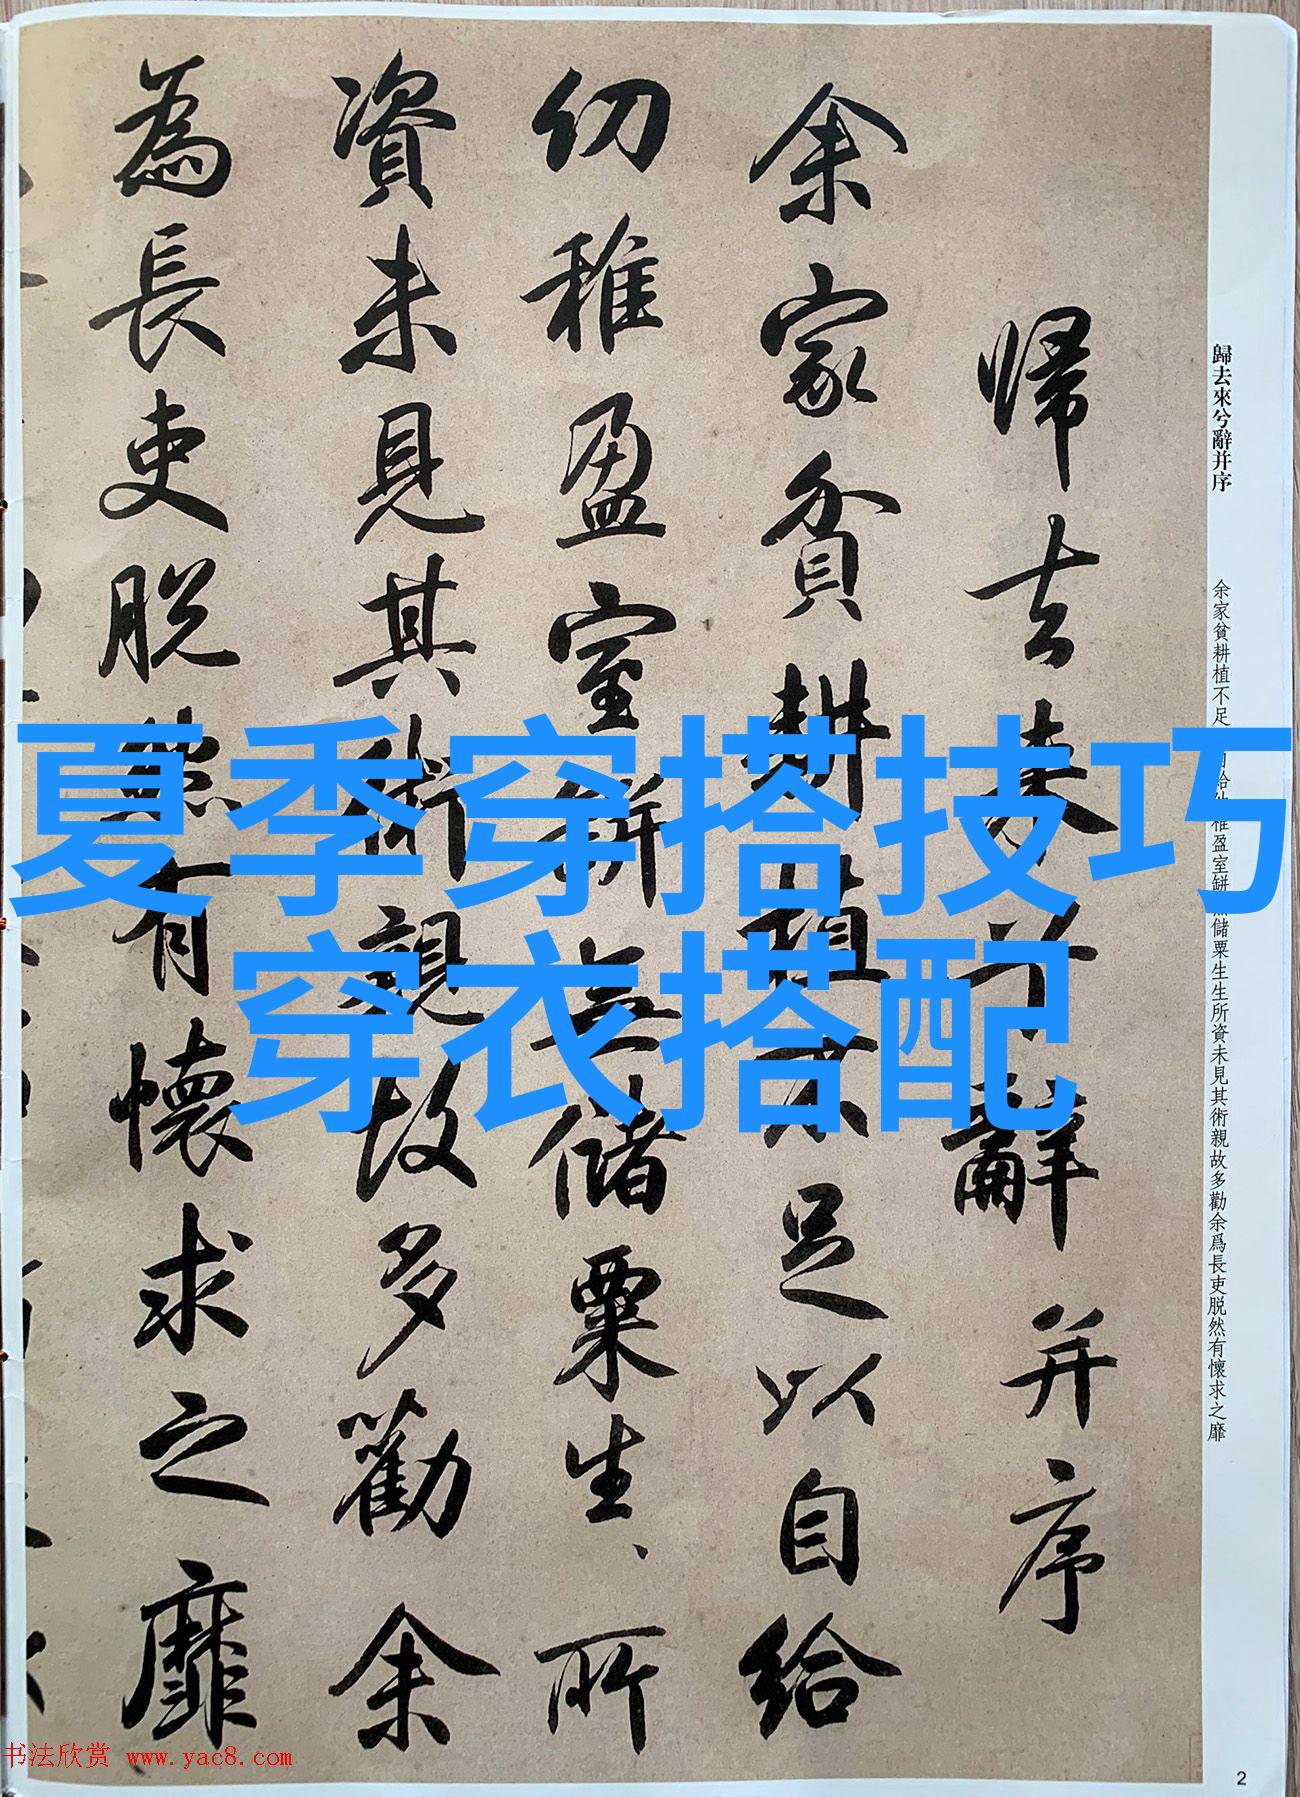 歸去來兮辭并序
余家貧耕植不足
稚盈室缾
儲粟生生所資未見其術親故多勸余爲長吏脱然有懷求之靡
帰去来兮辞并序
余家貧耕植不足以自給
幼稚盈室缾無儲粟生、所
資未見其術親故多勸余
為長吏脱然有懷求之靡
夏季穿搭技巧
穿衣搭配
书法欣赏 www.yac8.com
2